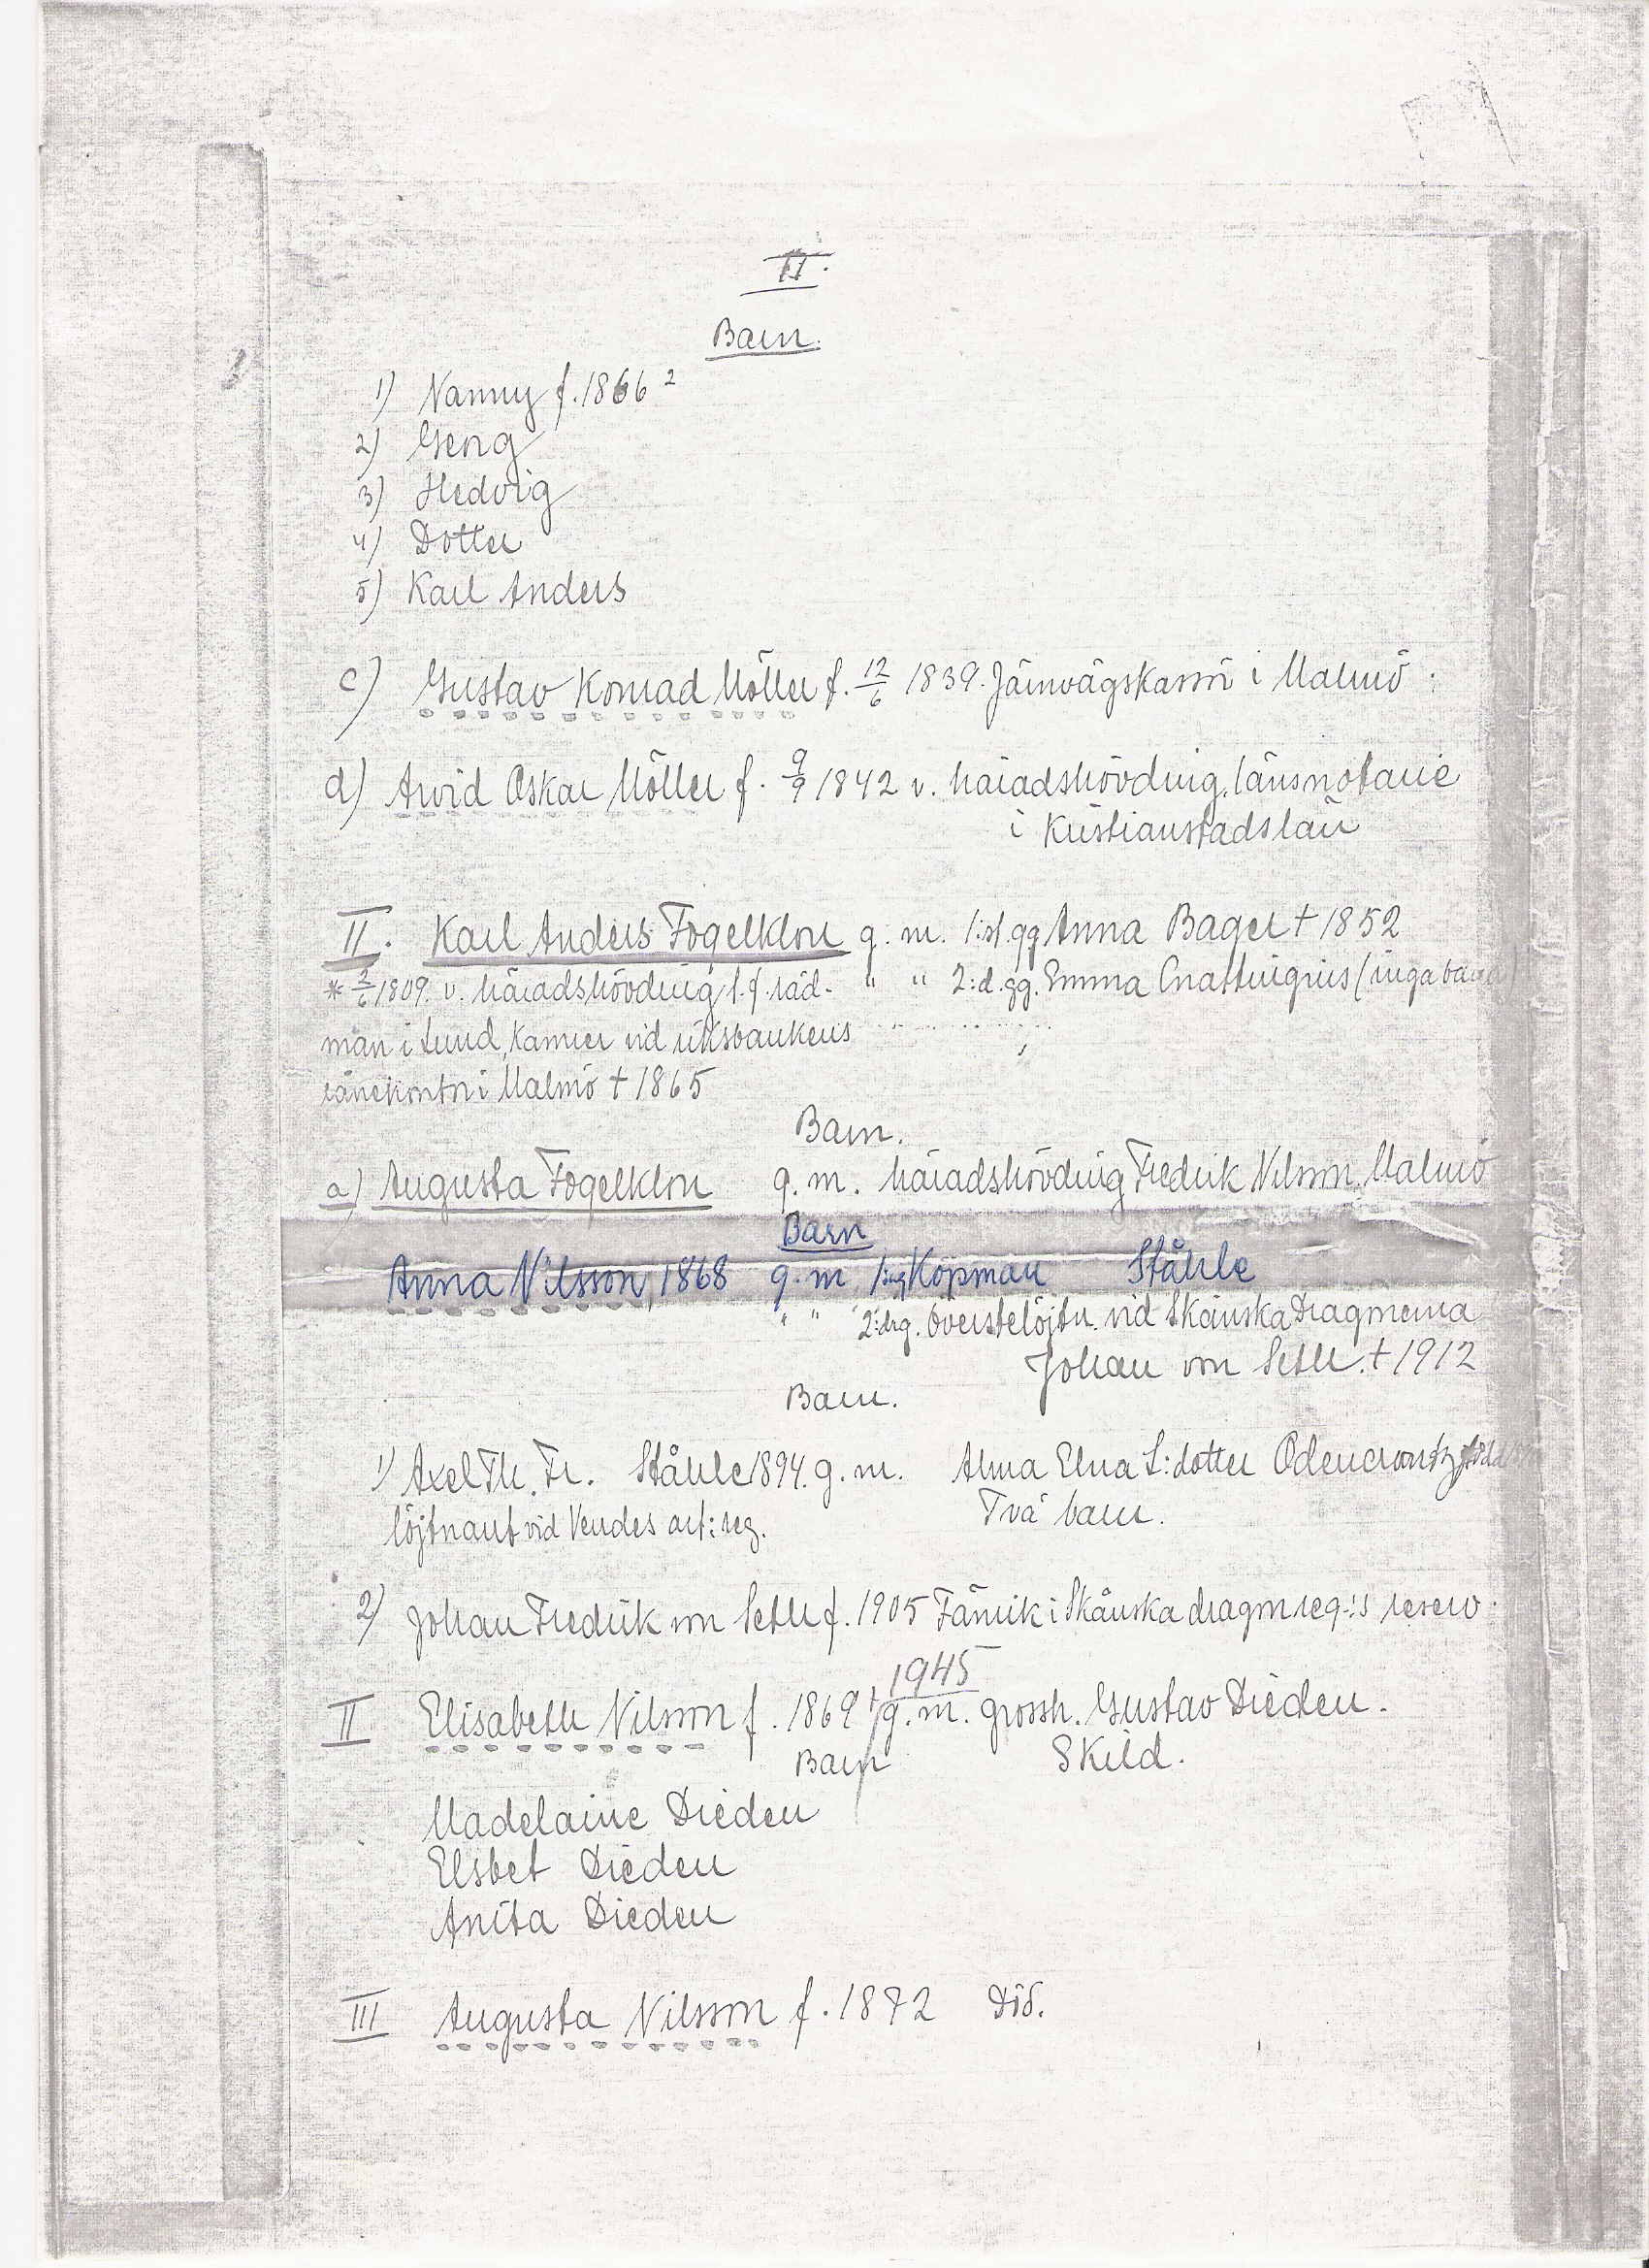 II.
Barn.
1) Nanny f. 1866 2
2) Georg
3) Hedvig
4) Dotter
5) Karl Anders
c) Gustav Konrad Möller f. 12/6 1839. Järnvägskassör i Malmö.
d) Arvid Oskar Möller f. 9/9 1842 v. häradshövding, länsnotarie
i Kristianstadslän
II. Karl Anders Fogelklou g. m. 1:st. gg Anna Bager † 1852
* 2/6 1809. v. häradshövding f. d. råd- " " 2:d. gg. Emma Cnattingius (inga barn)
man i Lund, Kamrer vid riksbankens
lånekontor i Malmö † 1865
Barn.
a) Augusta Fogelklou g. m. häradshövding Fredrik Nilsson, Malmö
Barn
Anna Nilsson, 1868 g. m. 1:sg Köpman Ståhle
" " 2:drg. överstelöjtn. vid Skånska Dragonerna
Johan von Seth. † 1912
Barn.
1) Axel Th. Fr. Ståhle 1894. g. m. Alma Elna S:dotter Odencrantz
löjtnant vid Vendes art: reg. Två barn.
2) Johan Fredrik von Seth f. 1905 Fänrik i Skånska dragon reg-:s reserv.
1945
II Elisabeth Nilsson f. 1869 † g. m. grossh. Gustav Dieden.
Barn Skild.
Madelaine Dieden
Elsbet Dieden
Anita Dieden
III Augusta Nilsson f. 1872 Död.